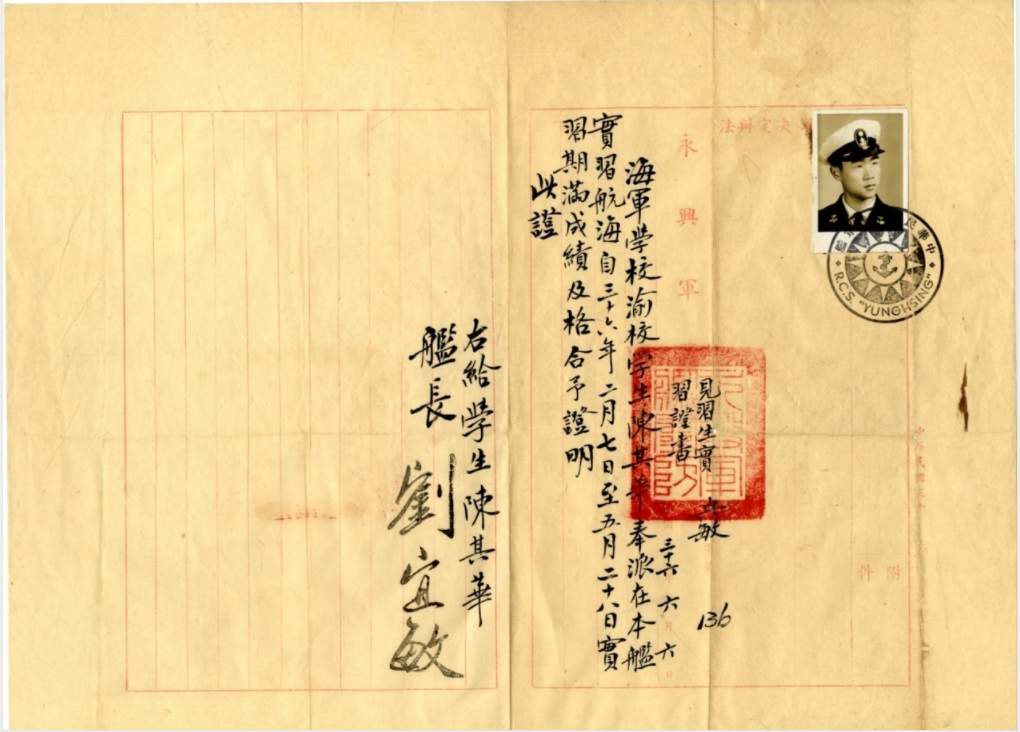 R.C.S. "YUNGHSING"
附件
決定辦法
永興軍
見習生實
習證書
宜敏
136
三十六 六 六
海軍學校渝校學生陳其華奉派在本艦
實習航海自三十六年二月七日至五月二十八日實
習期滿成績及格合予證明
此證
右給學生陳其華
艦長 劉宜敏